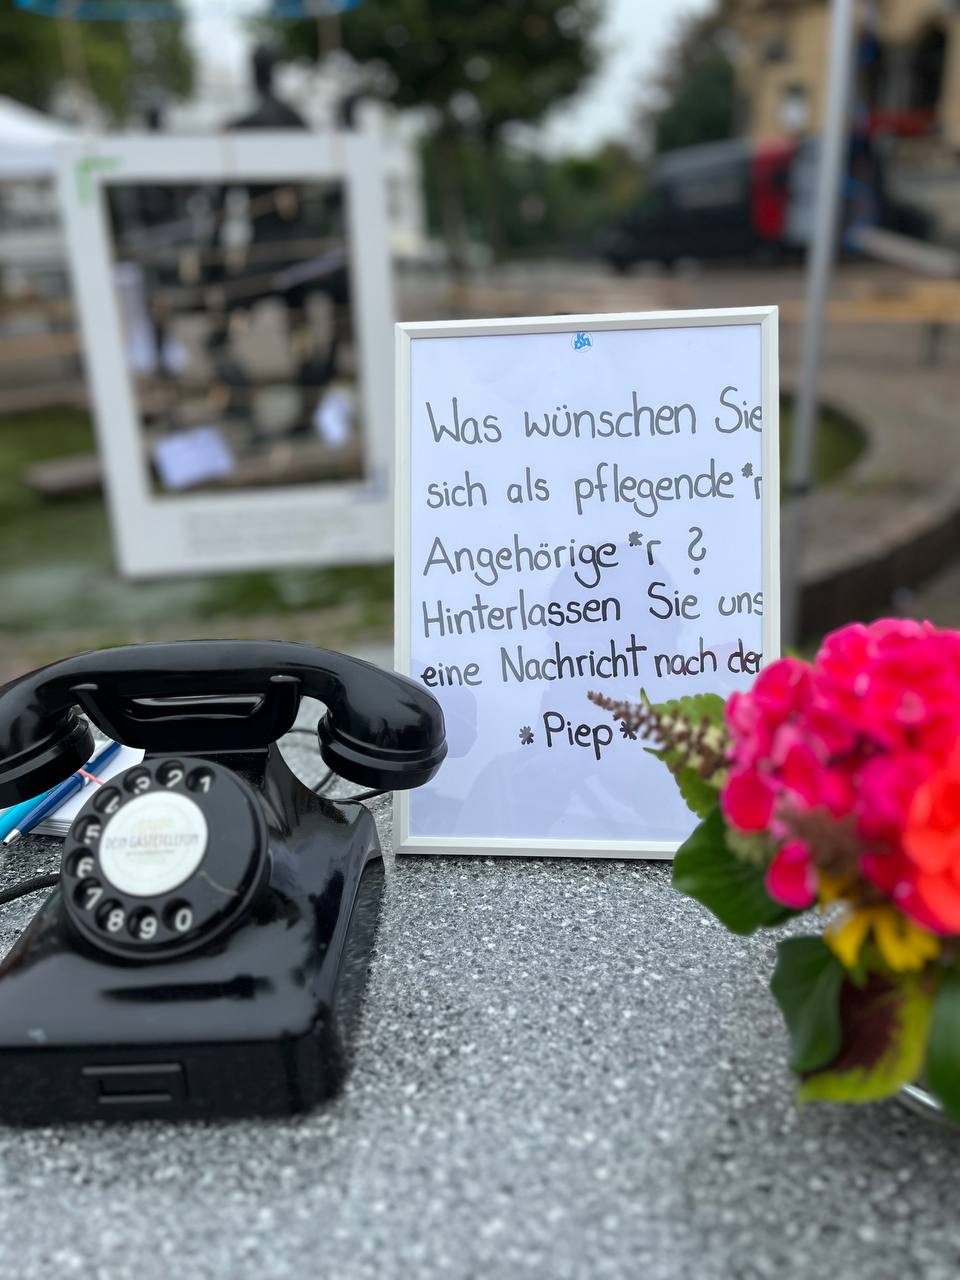 Was wünschen Sie
sich als pflegende*r
Angehörige*r ?
Hinterlassen Sie uns
eine Nachricht nach der
*Piep*
DEIN GÄSTETELEFON
1
2
3
5
6
7
8
9
0